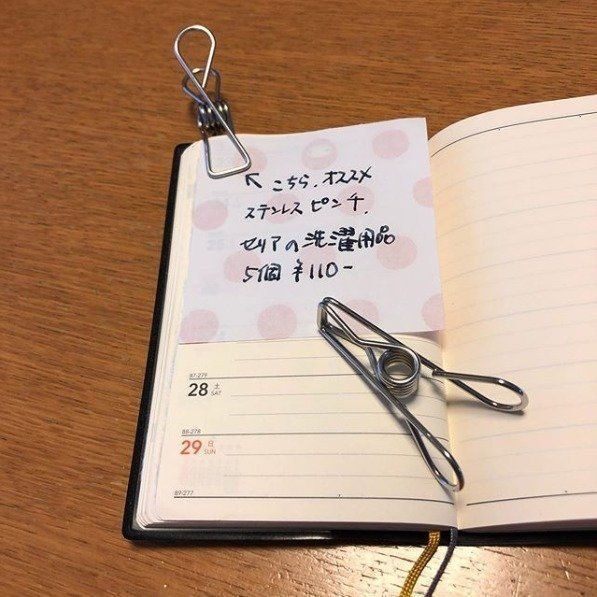 ↖ こちら、オススメ
ステンレス ピンチ、
セリアの洗濯用品
5個 ¥110-
87-279
28 土
SAT
88-278
29 日
SUN
89-277